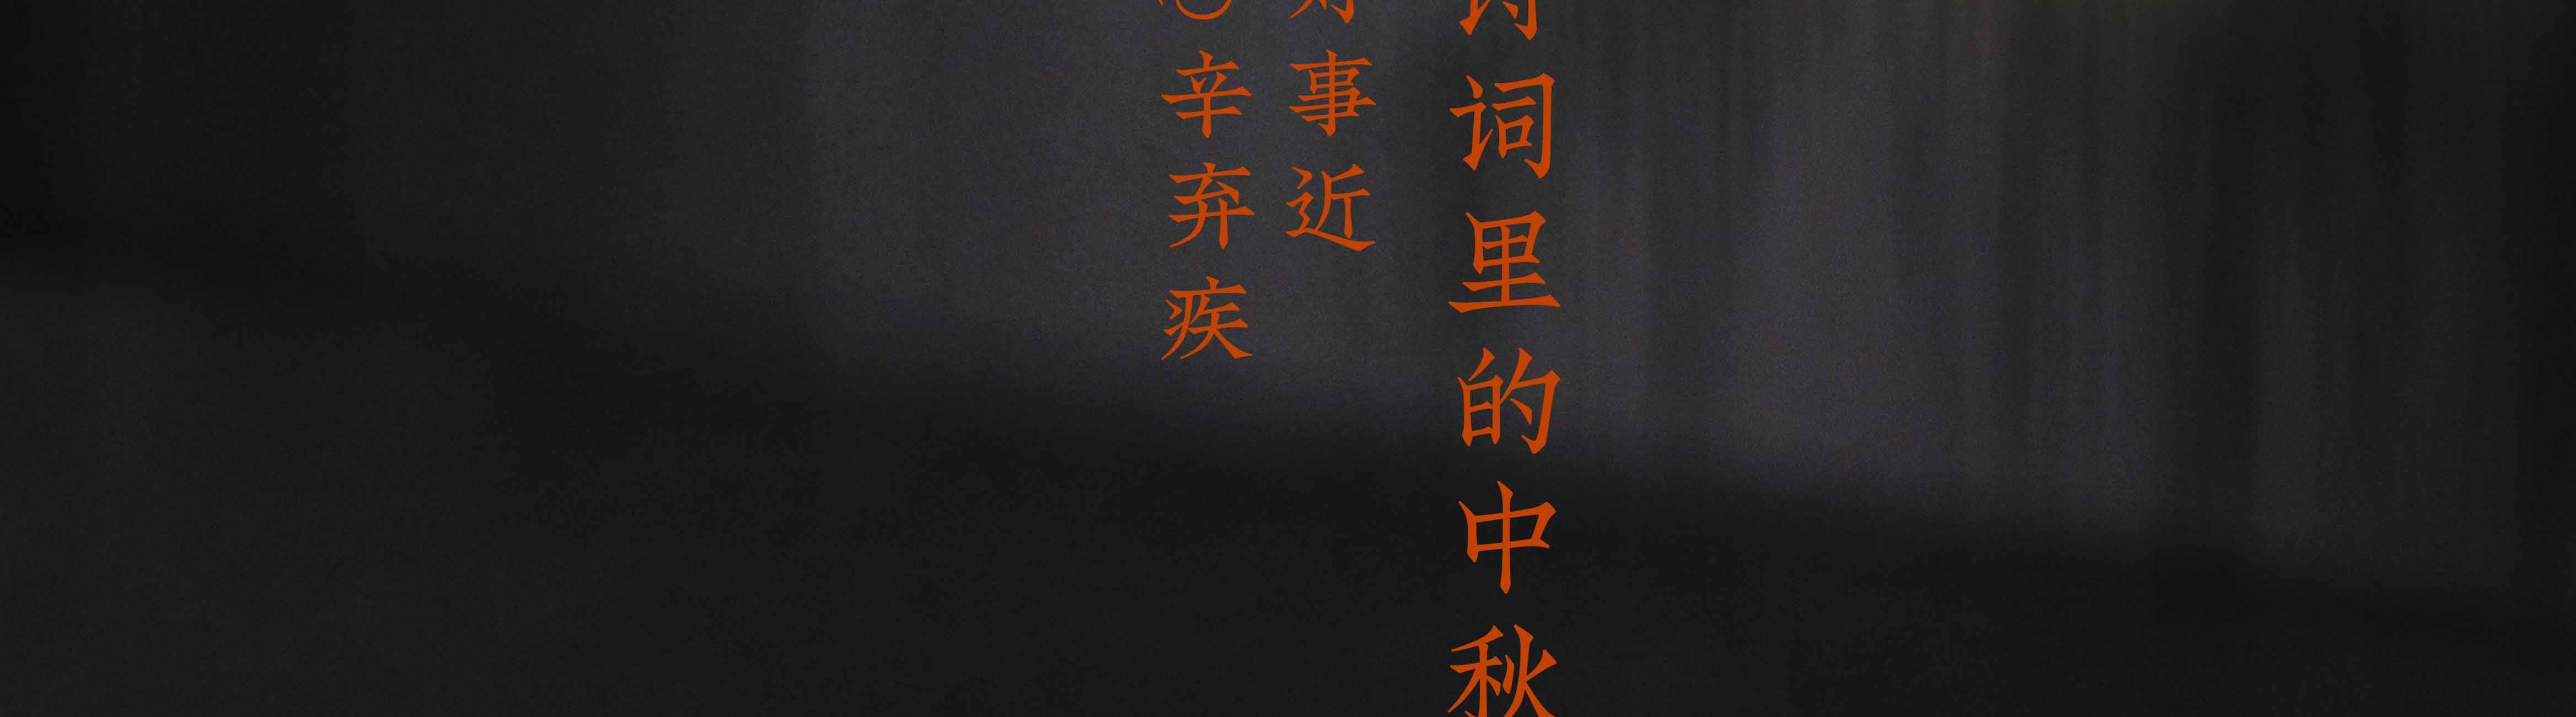 诗词里的中秋
好事近
辛弃疾